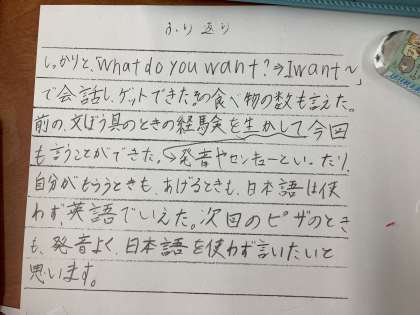 ふり返り
しっかりと、「What do you want?⇒I want～」
で会話し、ゲットできた食べ物の数も言えた。
前の、文ぼう具のときの経験を生かして、今回
も言うことができた。→発音やセンキューといったり、
自分がもらうときも、あげるときも、日本語は使
わず、英語でいえた。次回のピザのとき
も、発音よく、日本語を使わず言いたいと
思います。